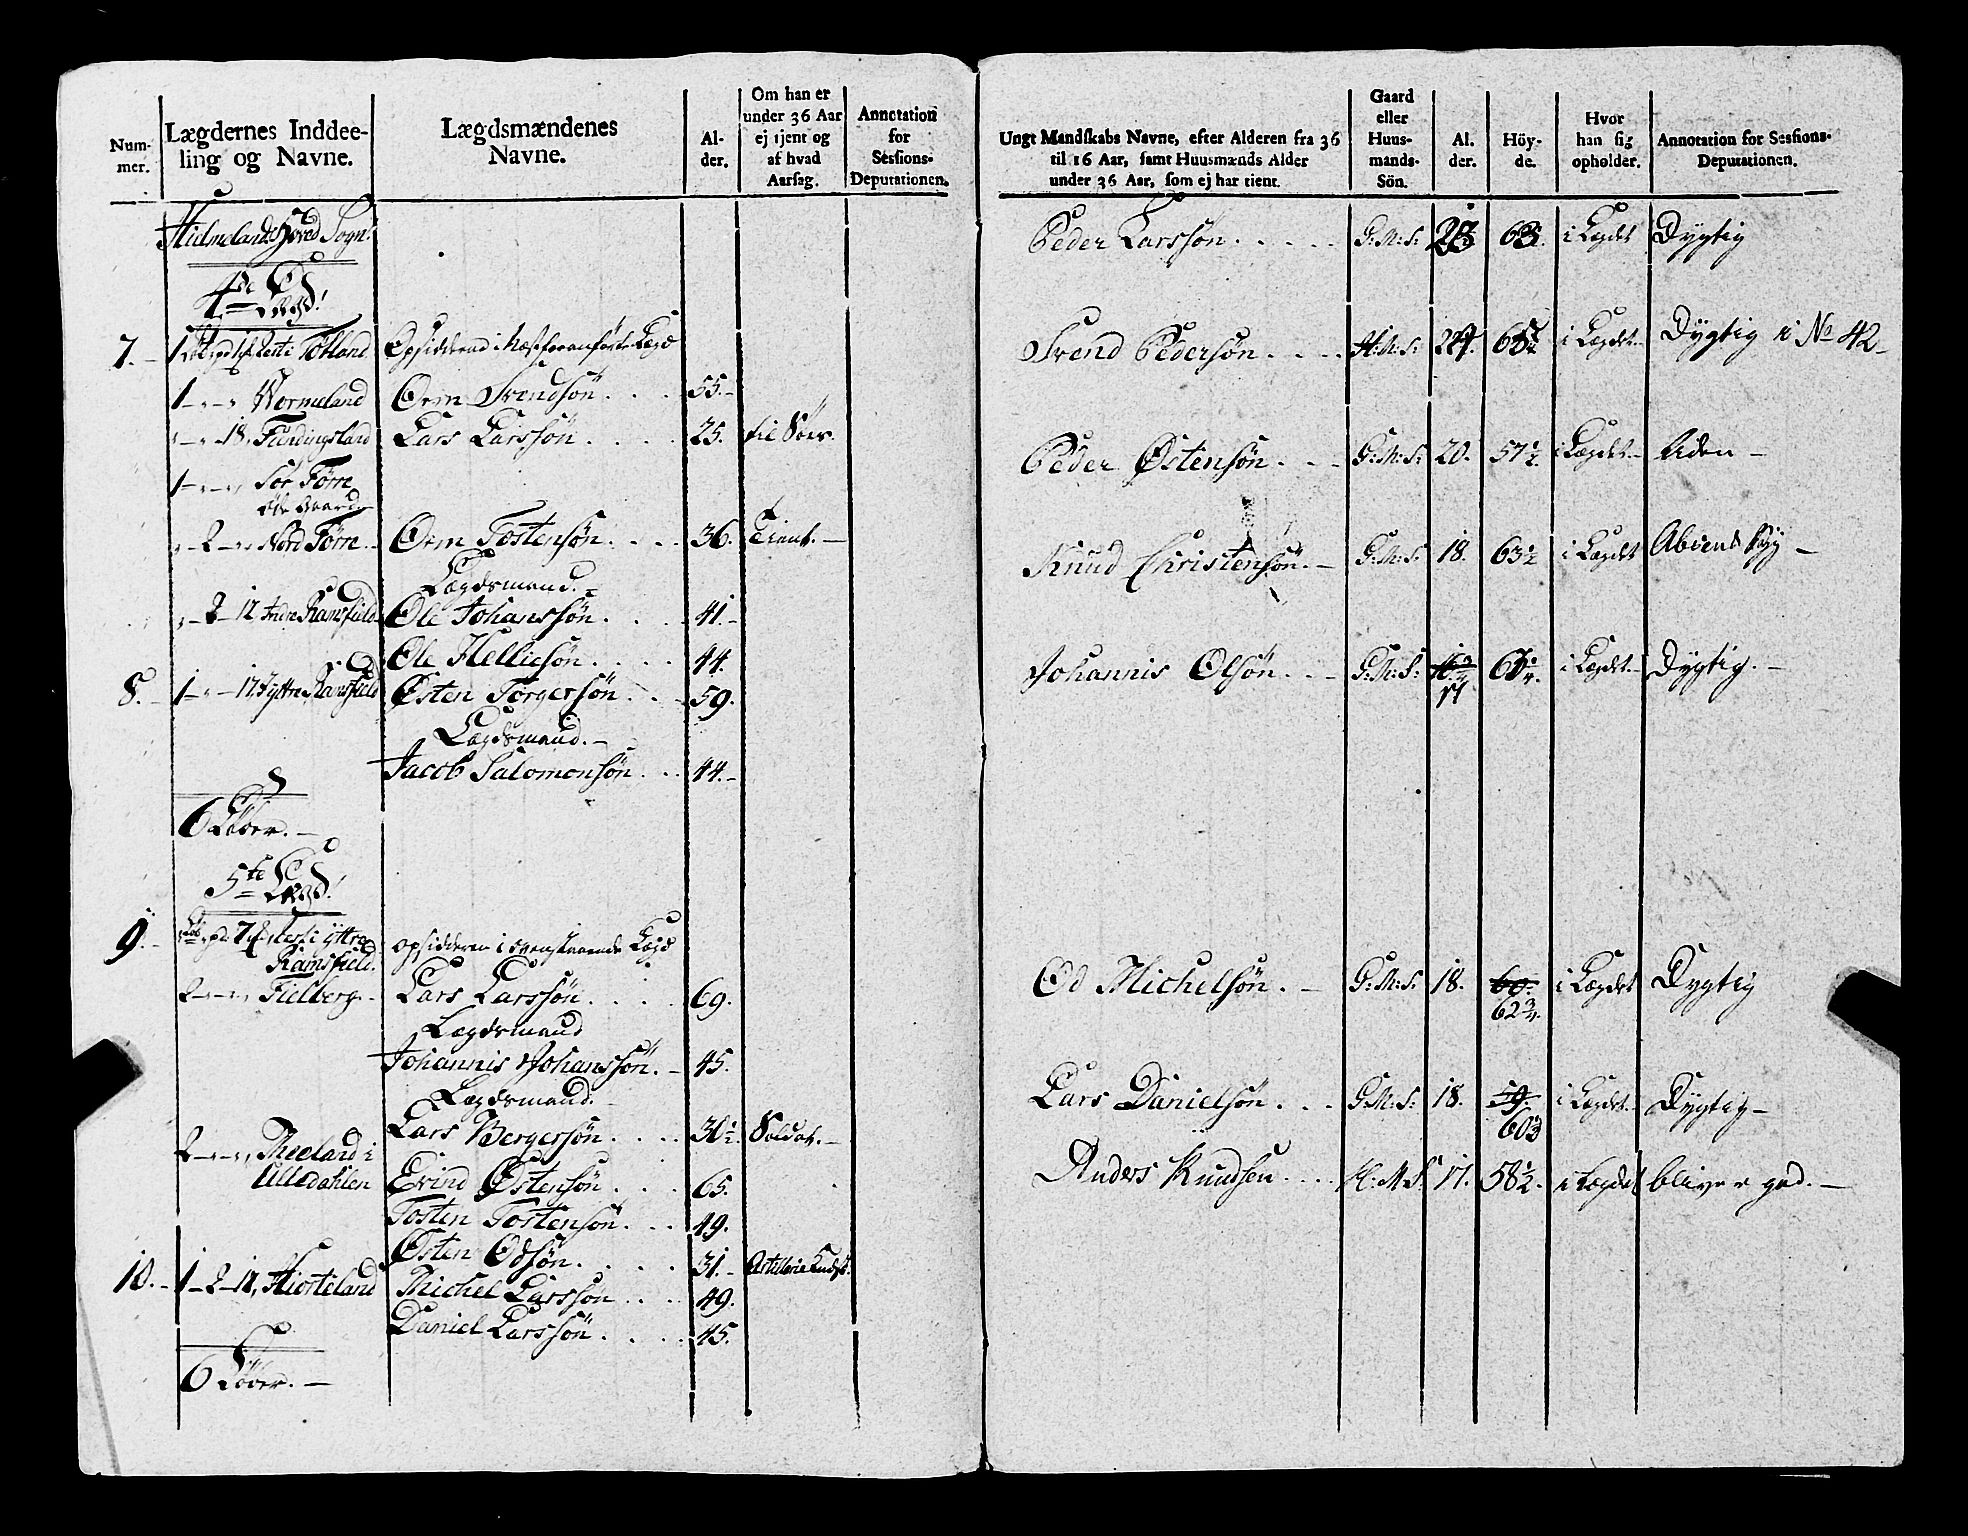 Num-
mer.
Lægdernes Inddee-
ling og Navne.
Lægdsmændenes
Navne.
Al-
der.
Om han er
under 36 Aar
ej tjent og
af hvad
Aarsag.
Annotation
for
Sessions-
Deputationen.
Hielmelands Hoved Sogn!
4de Lægd!
7. Opsidderne i Næstforanførte Lægd
1 Wormeland Orm Svendsøn 55.
18. Fundingsland Lars Larssøn 25.
1 Sør Førre
Øde Gaard
2 Nord Førre Orm Tostensøn 36. Tient.
Lægdsmand.
2 12 Indre Ramsfield Ole Johanssøn 41.
Ole Helliesøn 44.
8. 1 17. Yttre Ramsfield Østen Torgersøn 59.
Lægdsmand.
Jacob Salomonsøn 44.
6 Løber.
5te Lægd!
9. 7 i yttre opsidderen i ovenstaaende Lægd
Ramsfield.
2 Fielberg Lars Larssøn 69.
Lægdsmand
Johannis Johanssøn. 45.
Lægdsmand.
Lars Bergersøn 30½. Soldat.
2 Meeland i
Ulledahlen Evind Østensøn 65.
Tosten Tostensøn 49.
Østen Odsøn 31. Artillerie Kudsk.
10. 1 2 Hiorteland Michel Larssøn 49.
Daniel Larssøn 45.
6 Løber.
Ungt Mandskabs Navne, efter Alderen fra 36
til 16 Aar, samt Huusmænds Alder
under 36 Aar, som ej har tient.
Gaard
eller
Huus-
mands-
Sön.
Al.
der.
Höy-
de.
Hvor
han sig
opholder.
Annotation for Sessions-
Deputationen.
Peder Larssøn G:M:S: i Lægdet Dygtig
Svend Pedersøn H:M:S: i Lægdet Dygtig i No 42
Peder Østensøn G:M:S: 20. 57½ i Lægdet
Knud Christensøn. G:M:S: 18. 63½ i Lægdet
Johannis Olsøn G:M:S: i Lægdet Dygtig.
17
Od Michelsøn. G:M:S: 18. 60. i Lægdet Dygtig
62¾.
Lars Danielsøn G:M:S: 18. 59. i Lægdet Dygtig
60½
Anders Knudsen H:M:S: 17. 58½. i Lægdet bliver god.